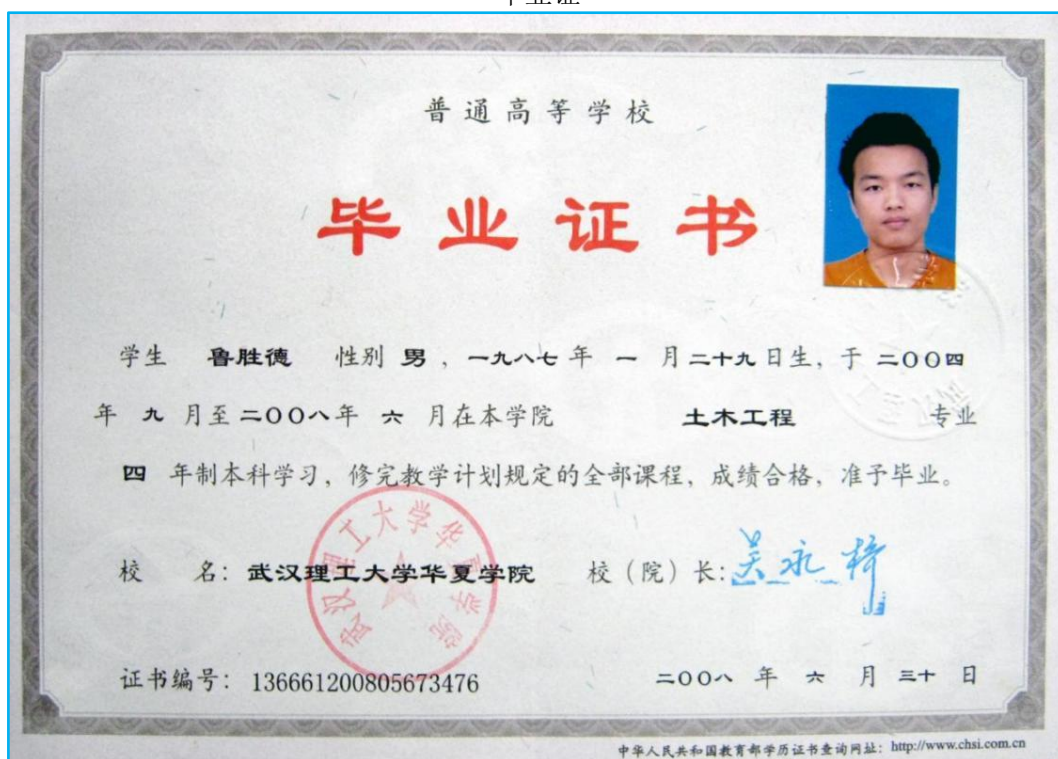 毕业证
普通高等学校
毕业证书
学生 鲁胜德 性别 男，一九八七年 一 月二十九日生，于 二〇〇四
年 九 月至二〇〇八年 六 月在本学院 土木工程 专业
四 年制本科学习，修完教学计划规定的全部课程，成绩合格，准予毕业。
武汉理工大学华夏学院
校 名：武汉理工大学华夏学院 校（院）长：
证书编号：136661200805673476 二〇〇八 年 六 月 三十 日
中华人民共和国教育部学历证书查询网址：http://www.chsi.com.cn